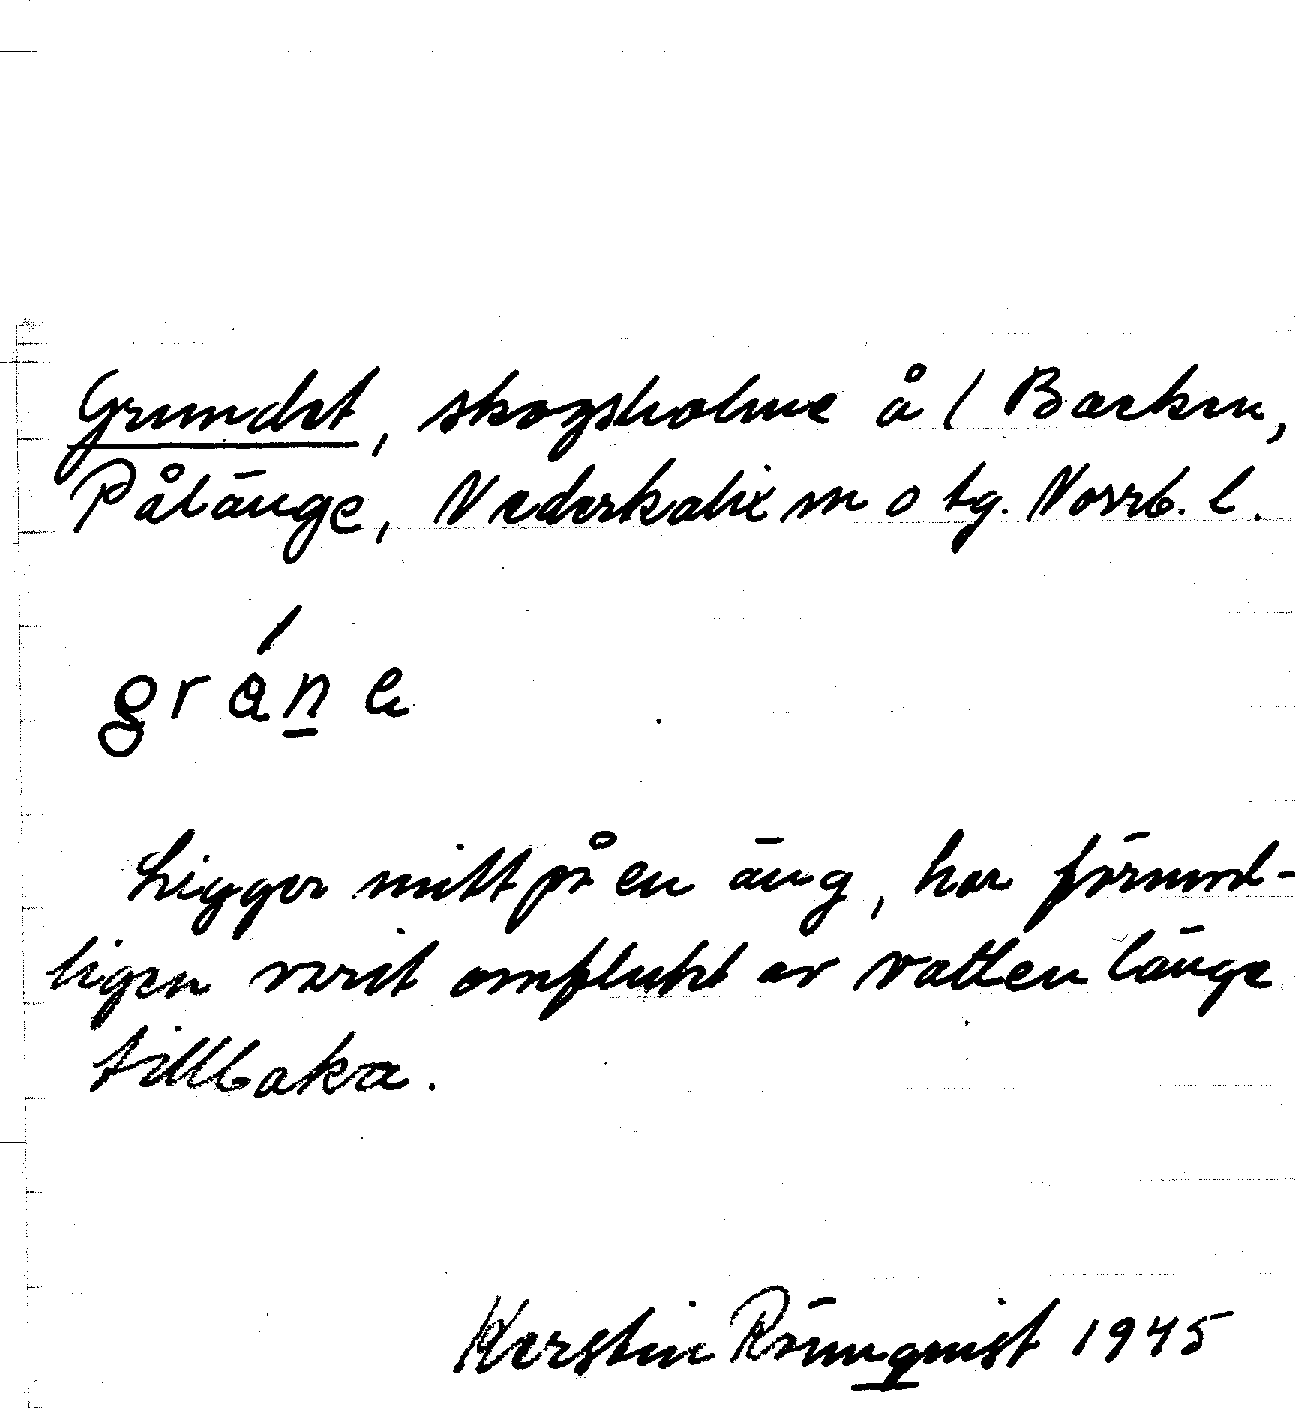 Grundet, skogsholme å 1 Backen,
Pålänge, Nederkalix sn o tg. Norrb. l.
gráne
Ligger mitt på en äng, har förmod-
ligen varit omflutet av vatten länge
tillbaka.
Kerstin Rönnqvist 1945